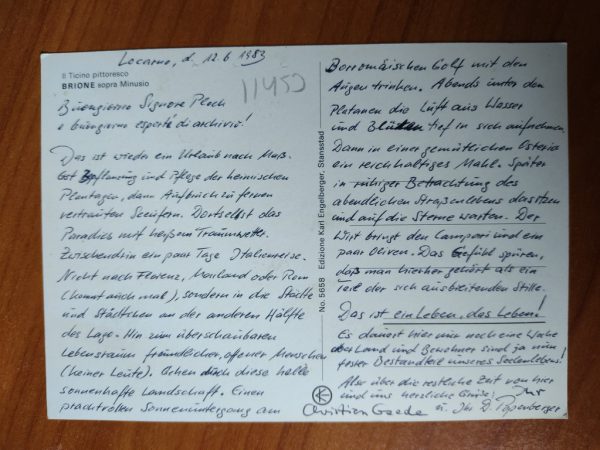 Locarno, d. 12.6.1983
Il Ticino pittoresco
BRIONE sopra Minusio
11450
Buongiorno Signore Ploch
e buongiorno esporté di archivio!
Das ist wieder ein Urlaub nach Maß.
Bepflanzung und Pflege der heimischen
Plantagen, dann Aufbruch zu fernen
vertrauten Seeufern. Dortselbst das
Paradies mit heißem Traumwetter.
Zwischendrin ein paar Tage Italienreise.
Nicht nach Florenz, Mailand oder Rom
(kommt auch mal), sondern in die Städte
und Städtchen an der anderen Hälfte
des Lago. Hin zum überschaubaren
Lebensraum freundlicher, offener Menschen
(keiner Leute). Gehen durch diese helle
sonnenhafte Landschaft. Einen
prachtvollen Sonnenuntergang am
No. 5658 Edizione Karl Engelberger, Stansstad
Borromäischen Golf mit den
Augen trinken. Abends unter den
Platanen die Luft aus Wasser
und Blüten tief in sich aufnehmen.
Dann in einer gemütlichen Osteria
ein reichhaltiges Mahl. Später
in ruhiger Betrachtung des
abendlichen Straßenlebens dasitzen
und auf die Sterne warten. Der
Wirt bringt den Campari und ein
paar Oliven. Das Gefühl spüren,
daß man hierher gehört als ein
Teil der sich ausbreitenden Stille.
Das ist ein Leben, das Leben!
Es dauert hier nur noch eine Woche
aber Land und Bewohner sind ja nun
fester Bestandteil unseres Seelenlebens!
Also über die restliche Zeit von hier
und uns herzliche Grüße: Ihr
Christian Goede u. Ihr D. Papenberger